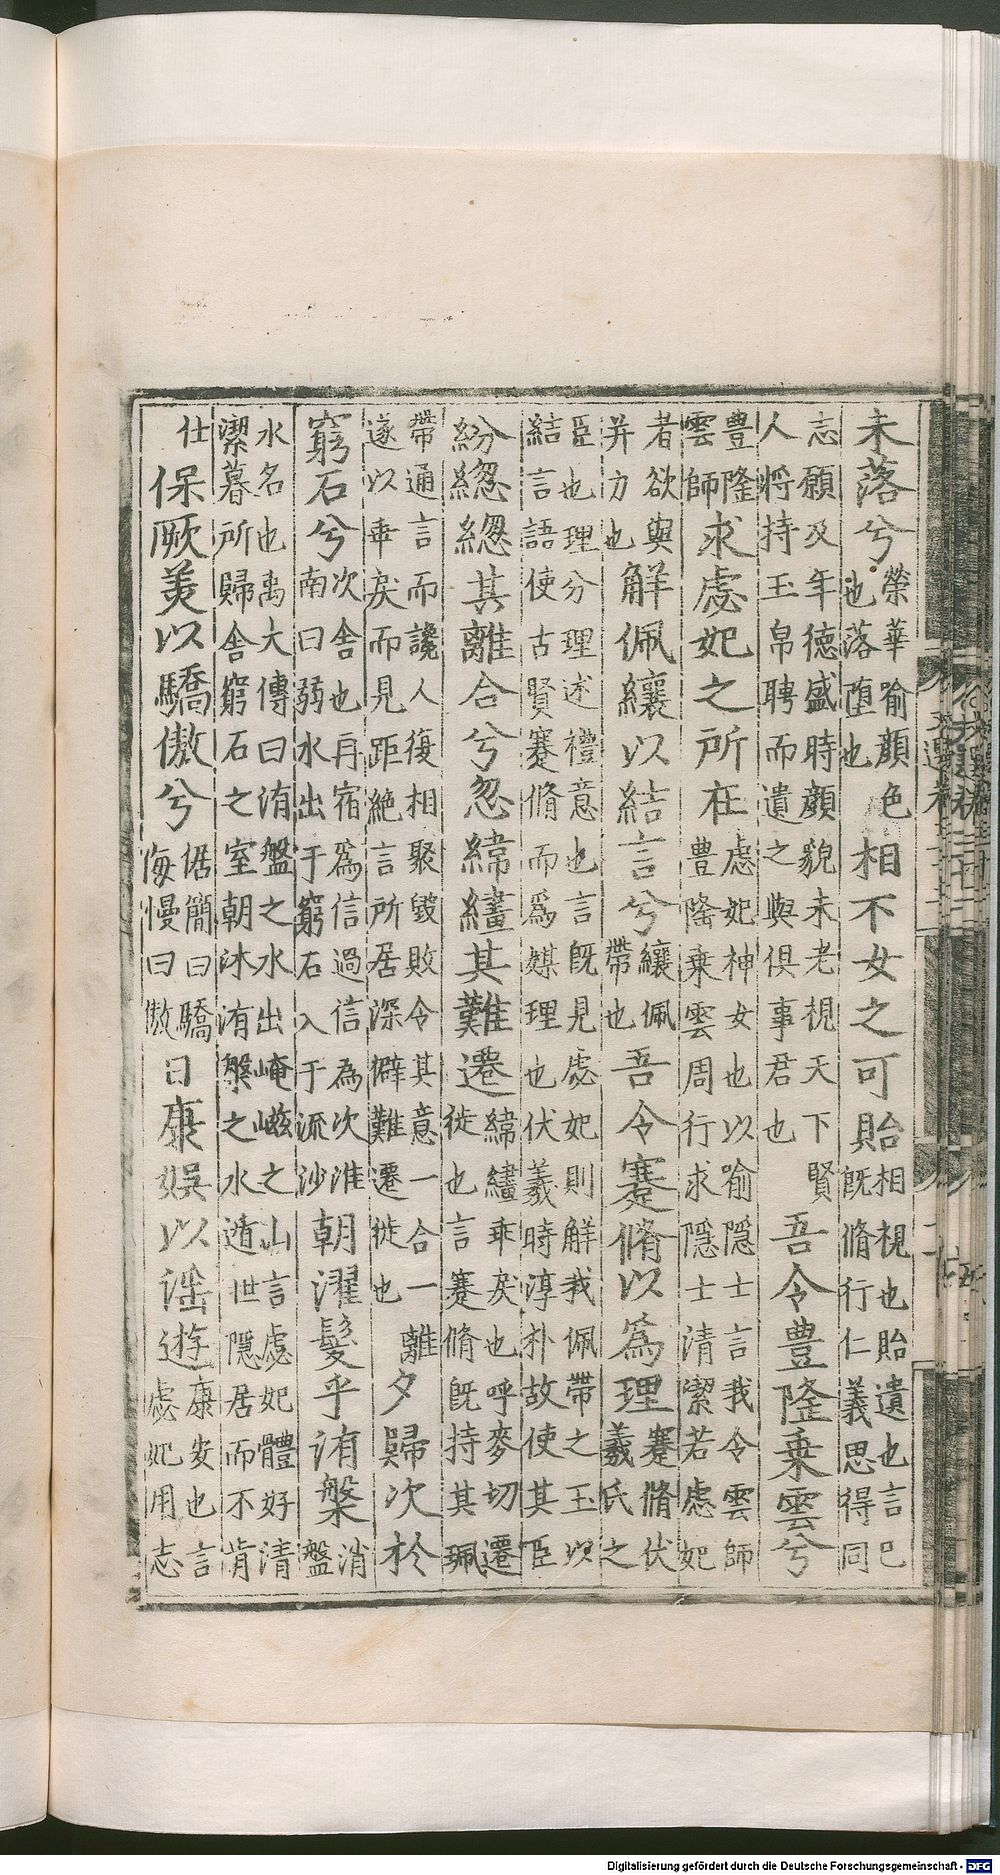 未落兮榮華喻顔色也落堕也相不女之可貽相視也貽遺也言巳既脩行仁義思得同
志願及年德盛時顔貌未老視天下賢人將持玉帛聘而遺之與俱事君也吾令豊隆乗雲兮
豊隆雲師求虙妃之所在虙妃神女也以喻隱士言我令雲師豊隆乗雲周行求隱士清潔若虙妃
者欲與并力也解佩纕以結言兮纕佩帶也吾令蹇脩以爲理蹇脩伏羲氏之
臣也理分理述禮意也言既見虙妃則解我佩帶之玉以結言語使古賢蹇脩而爲媒理也伏羲時淳朴故使其臣
紛緫緫其離合兮忽緯繣其難遷緯繣乖戾也呼麥切遷徙也言蹇脩既持其珮
帶通言而讒人復相聚毀敗令其意一合一離遂以乖戾而見距絶言所居深僻難遷徙也夕歸次於
窮石兮次舍也再宿爲信過信為次淮南曰弱水出于窮石入于流沙朝濯髮乎洧槃消盤
水名也禹大傳曰洧盤之水出崦嵫之山言虙妃體好清潔暮所歸舍窮石之室朝沐洧槃之水遁世隱居而不肯
仕保厥美以驕傲兮倨簡曰驕侮慢曰傲日康娛以滛遊康安也言虙妃用志
Digitalisierung gefördert durch die Deutsche Forschungsgemeinschaft - DFG